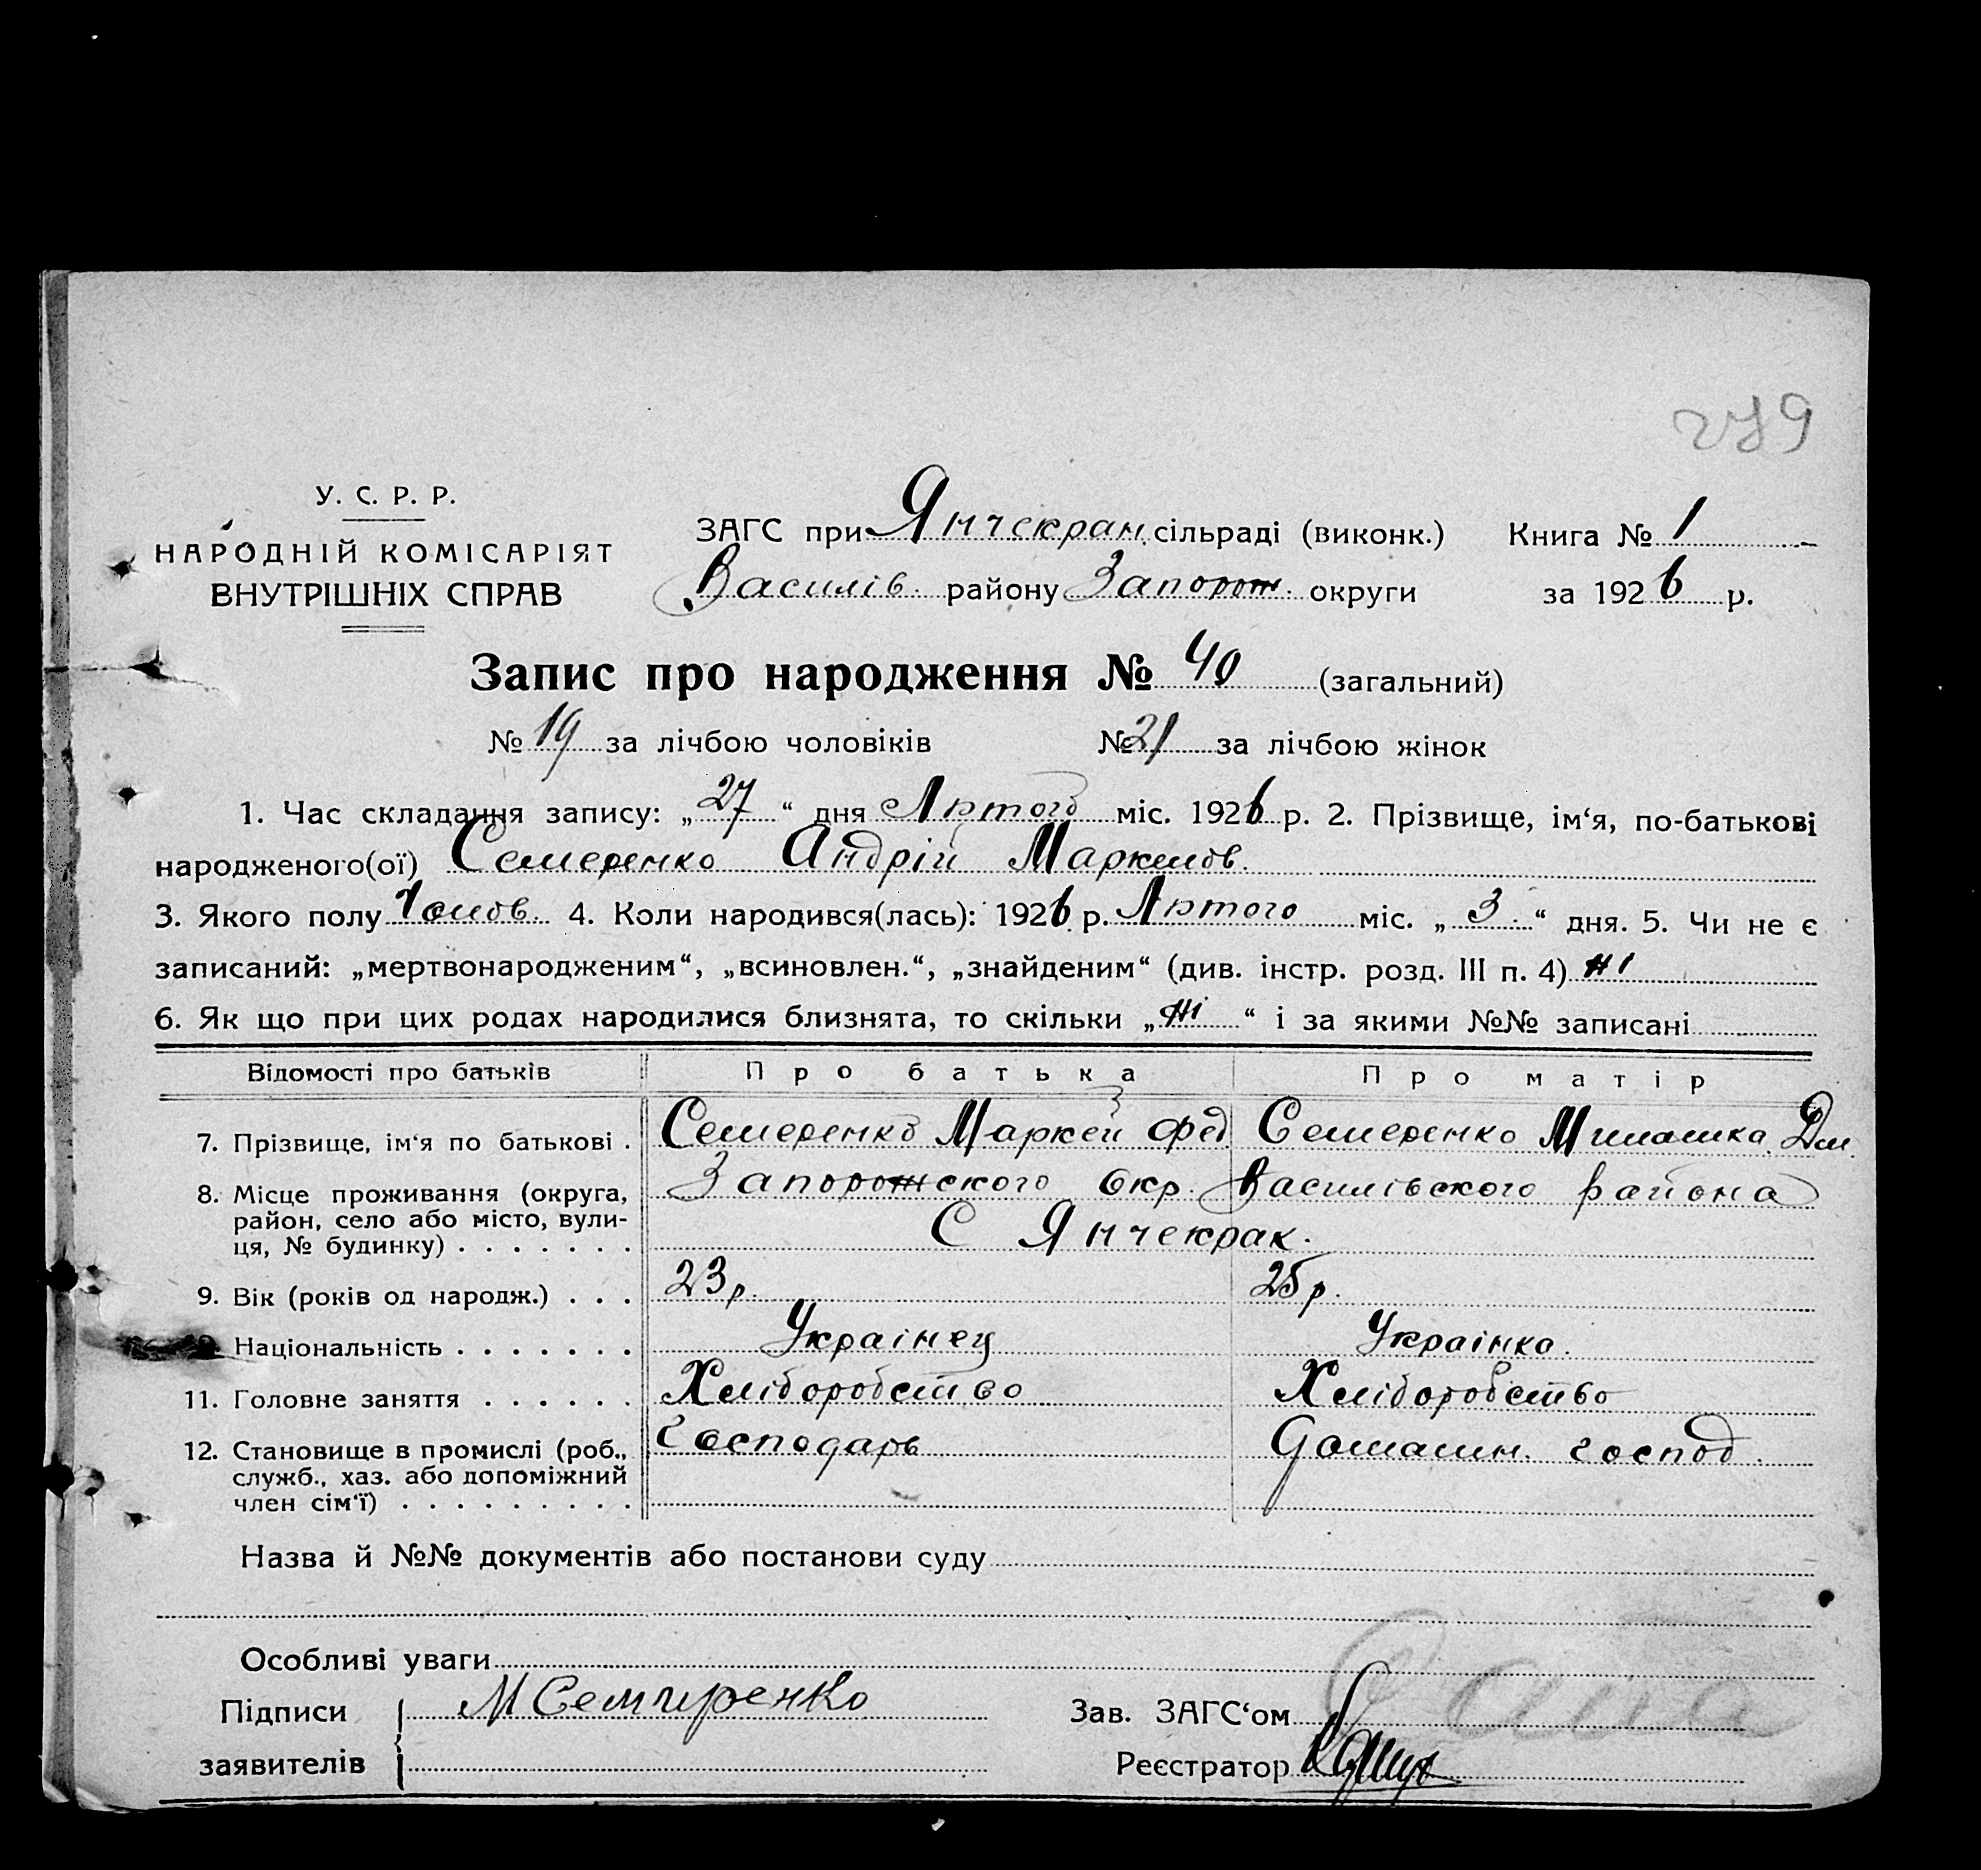 279
У. С. Р. Р.
НАРОДНІЙ КОМІСАРІЯТ
ВНУТРІШНІХ СПРАВ
ЗАГС при Янчекран. сільраді (виконк.) Книга № 1
Василів. району Запорож. округи за 1926 р.
Запис про народження № 40 (загальний)
№ 19 за лічбою чоловіків № 21 за лічбою жінок
1. Час складання запису: „27“ дня Лютого міс. 1926 р. 2. Прізвище, ім‘я, по-батькові
народженого(ої) Семеренко Андрій Маркелов.
3. Якого полу Чолов. 4. Коли народився(лась): 1926 р. Лютого міс. „3.“ дня. 5. Чи не є
записаний: „мертвонародженим“, „всиновлен.“, „знайденим“ (див. інстр. розд. III п. 4) ні
6. Як що при цих родах народилися близнята, то скільки „ні“ і за якими №№ записані
Відомості про батьків Про батька Про матір
7. Прізвище, ім‘я по батькові . Семеренко Маркел Фед. Семеренко Дм.
8. Місце проживання (округа, Запорожского Окр. Василівского района
район, село або місто, вули-
ця, № будинку) . . . . . . . С Янчекрак.
9. Вік (років од народж.) . . . 23 р. 25 р.
Національність . . . . . . . Украінец Украінка.
11. Головне заняття . . . . . . Хліборобство Хліборобство
12. Становище в промислі (роб., Господарь Домашн. господ.
служб., хаз. або допоміжний
член сім‘ї) . . . . . . . . .
Назва й №№ документів або постанови суду
Особливі уваги
Підписи М Семиренко Зав. ЗАГС‘ом
заявителів Реєстратор